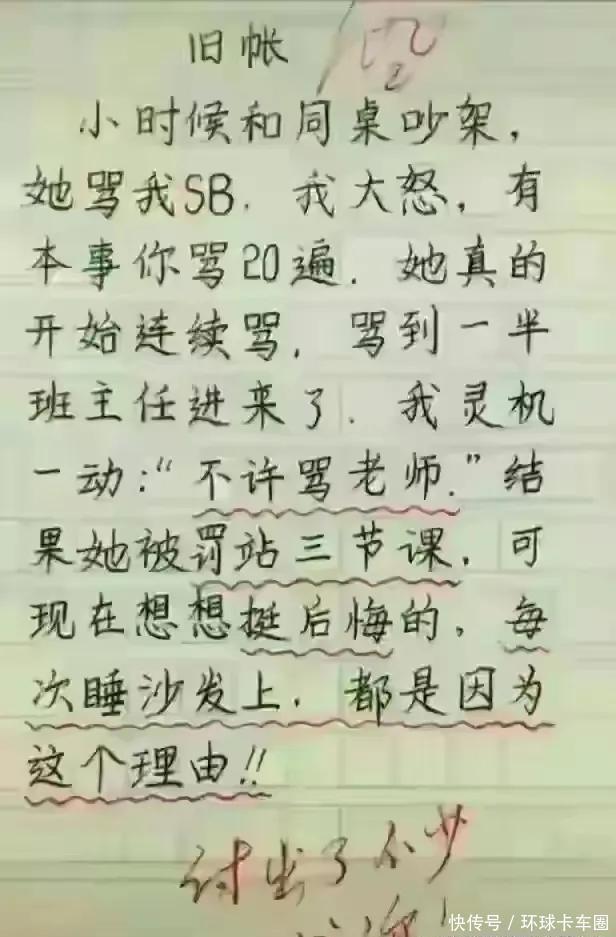 旧帐
小时候和同桌吵架，
她骂我SB. 我大怒，有
本事你骂20遍. 她真的
开始连续骂，骂到一半
班主任进来了. 我灵机
一动：“不许骂老师.”结
果她被罚站三节课，可
现在想想挺后悔的，每
次睡沙发上，都是因为
这个理由!!
讨出了不少
快传号／环球卡车圈